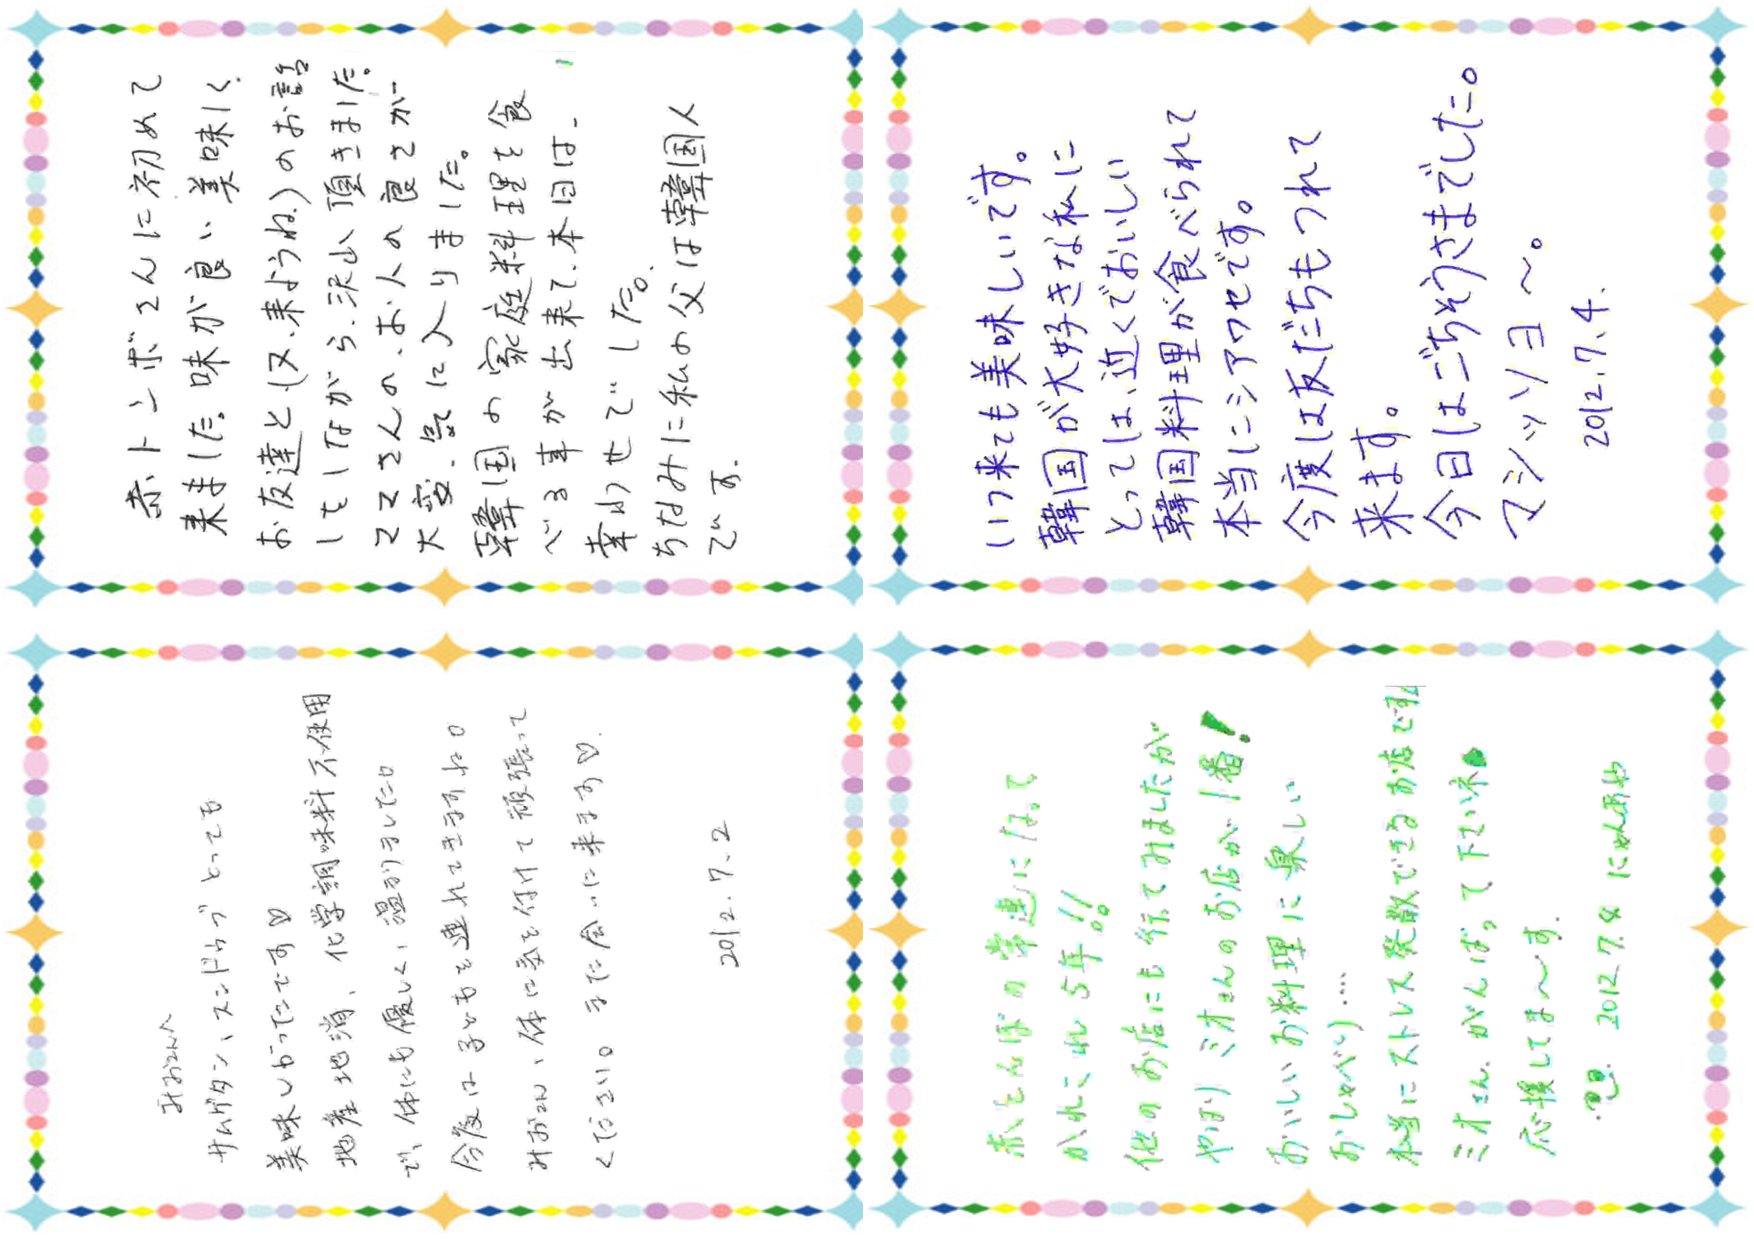 赤トンボさんに初めて
来ました。味が良い美味しく、
お友達と、(又、来ようね)のお話
しをしながら、沢山、頂きました。
ママさんの、お人の良さが
大変、気に入りました。
韓国の家庭料理を食
べる事が出来て、本日は、
幸わせでした。
ちなみに私の父は韓国人
です。
いつ来ても美味しいです。
韓国が大好きな私に
とっては、近くでおいしい
韓国料理が食べられて
本当にシアワセです。
今度は友だちもつれて
来ます。
今日はごちそうさまでした。
マシッソヨ〜。
2012.7.4.
みおさんへ
サムゲタン、スンドゥブ とっても
美味しかったです♡
地産地消、化学調味料不使用
で、体にも優しく、温かりました。
今度は子どもを連れてきますね。
みおさん、体に気を付けて頑張って
ください。また会いに来ます♡.
2012.7.2
赤とんぼの常連になって
かれこれ5年!!。
他のお店にも行ってみましたが
やはりミオさんのお店が1番!
おいしいお料理に楽しい
おしゃべり....
本当にストレス発散できるお店ですね
ミオさん.がんばって下さいネ
応援してま〜す.
2012.7.4